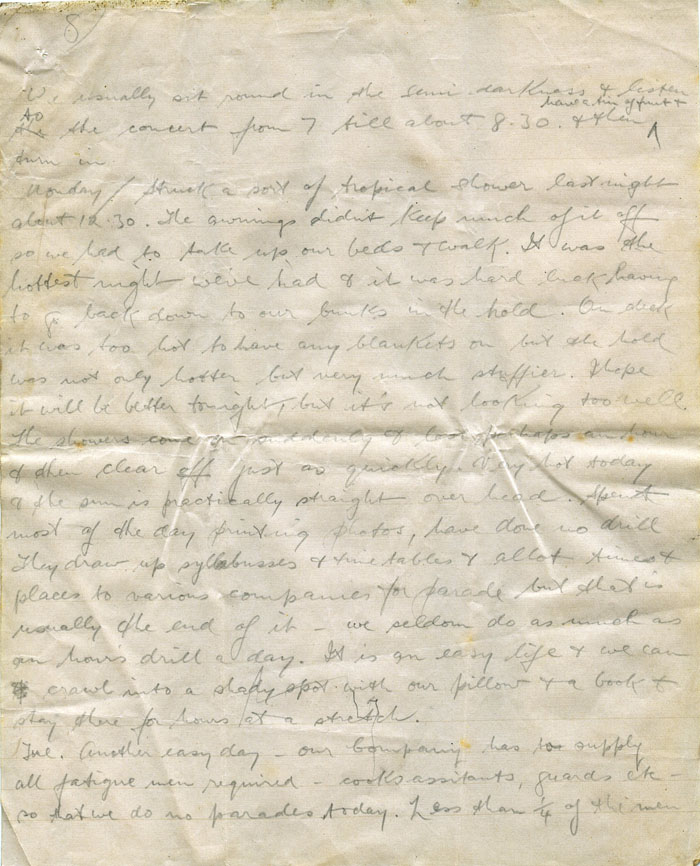 8
We usually sit round in the semi-darkness & listen
to the concert from 7 till about 8.30. & then have a tin of fruit &
turn in.
Monday / Struck a sort of tropical shower last night
about 12.30. The awnings didn't keep much of it off
so we had to take up our beds & walk. It was the
hottest night we've had & it was hard luck having
to go back down to our bunks in the hold. On deck
it was too hot to have any blankets on but the hold
was not only hotter but very much stuffier. I hope
it will be better tonight, but it's not looking too well.
The showers come on suddenly & last perhaps an hour
& then clear off just as quickly. Very hot today
& the sun is practically straight over head. Spent
most of the day printing photos, have done no drill
They draw up syllabusses & time tables & allot times &
places to various companies for parade but that is
usually the end of it - we seldom do as much as
an hours drill a day. It is an easy life & we can
crawl into a shady spot with our pillow & a book &
stay there for hours at a stretch.
Tue. Another easy day - our Company has to supply
all fatigue men required - cooks assitants, guards etc -
so that we do no parades today. Less than 1/4 of the men